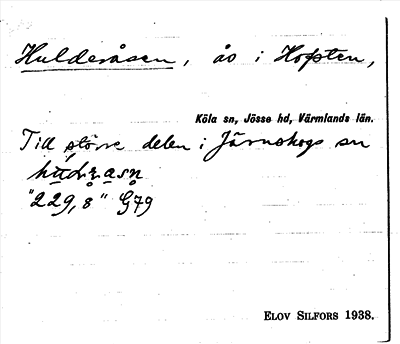 Hulderåsen, ås i Hofsten,
Köla sn, Jösse hd, Värmlands län.
Till större delen i Järnskogs sn
"229,8" G79
ELOV SILFORS 1938.